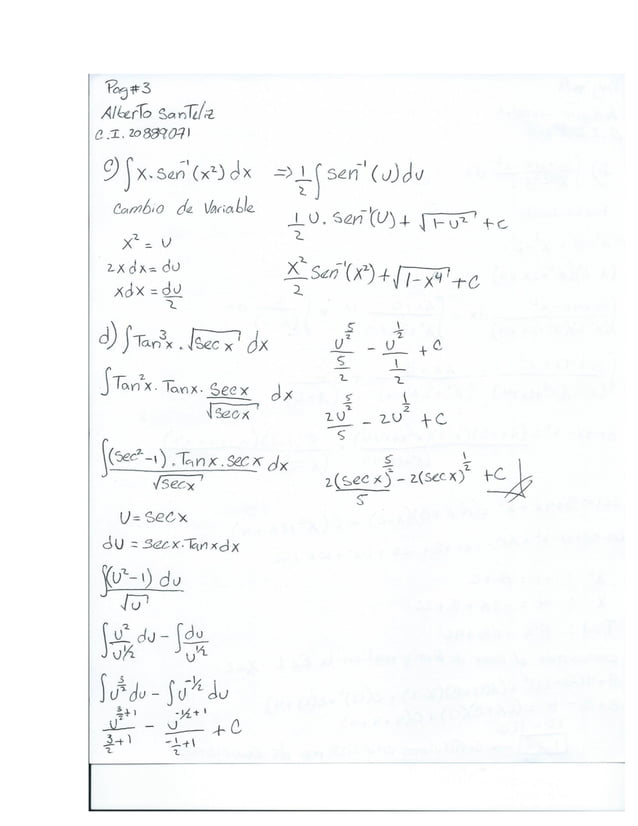 Pag#3
Alberto Santeliz
C.I. 20889071
c) ∫ x. Sen⁻¹(x²) dx ⇒ 1/2 ∫ Sen⁻¹(u) du
Cambio de Variable
x² = u
2x dx = du
x dx = du/2
1/2 u. Sen⁻¹(u) + √(1-u²) + C
x²/2 Sen⁻¹(x²) + √(1-x⁴) + C
d) ∫ Tan³x . √(Sec x) dx
∫ Tan²x . Tanx . Sec x/√(Sec x) dx
∫ (Sec²-1) . Tanx . Sec x/√(Sec x) dx
U = Sec x
dU = Sec x . Tanx dx
∫ (U²-1) dU/√U
∫ U²/U^(1/2) dU - ∫ dU/U^(1/2)
∫ U^(3/2) dU - ∫ U^(-1/2) dU
U^(3/2+1)/(3/2+1) - U^(-1/2+1)/(-1/2+1) + C
U^(5/2)/(5/2) - U^(1/2)/(1/2) + C
2U^(5/2)/5 - 2U^(1/2) + C
2(Sec x)^(5/2)/5 - 2(Sec x)^(1/2) + C